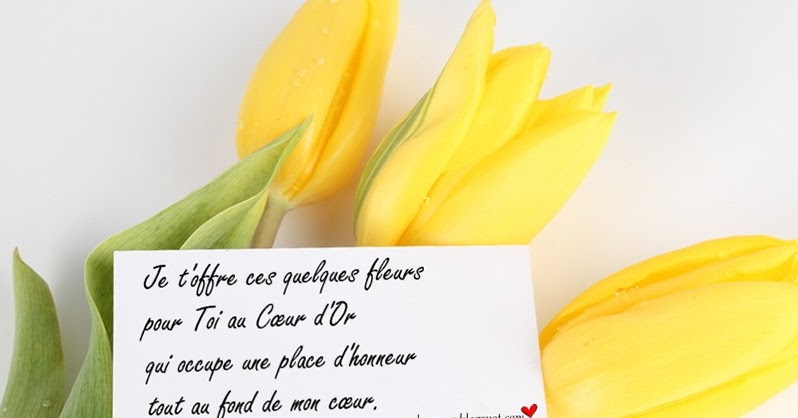 Je t'offre ces quelques fleurs
pour Toi au Cœur d'Or
qui occupe une place d'honneur
tout au fond de mon cœur.